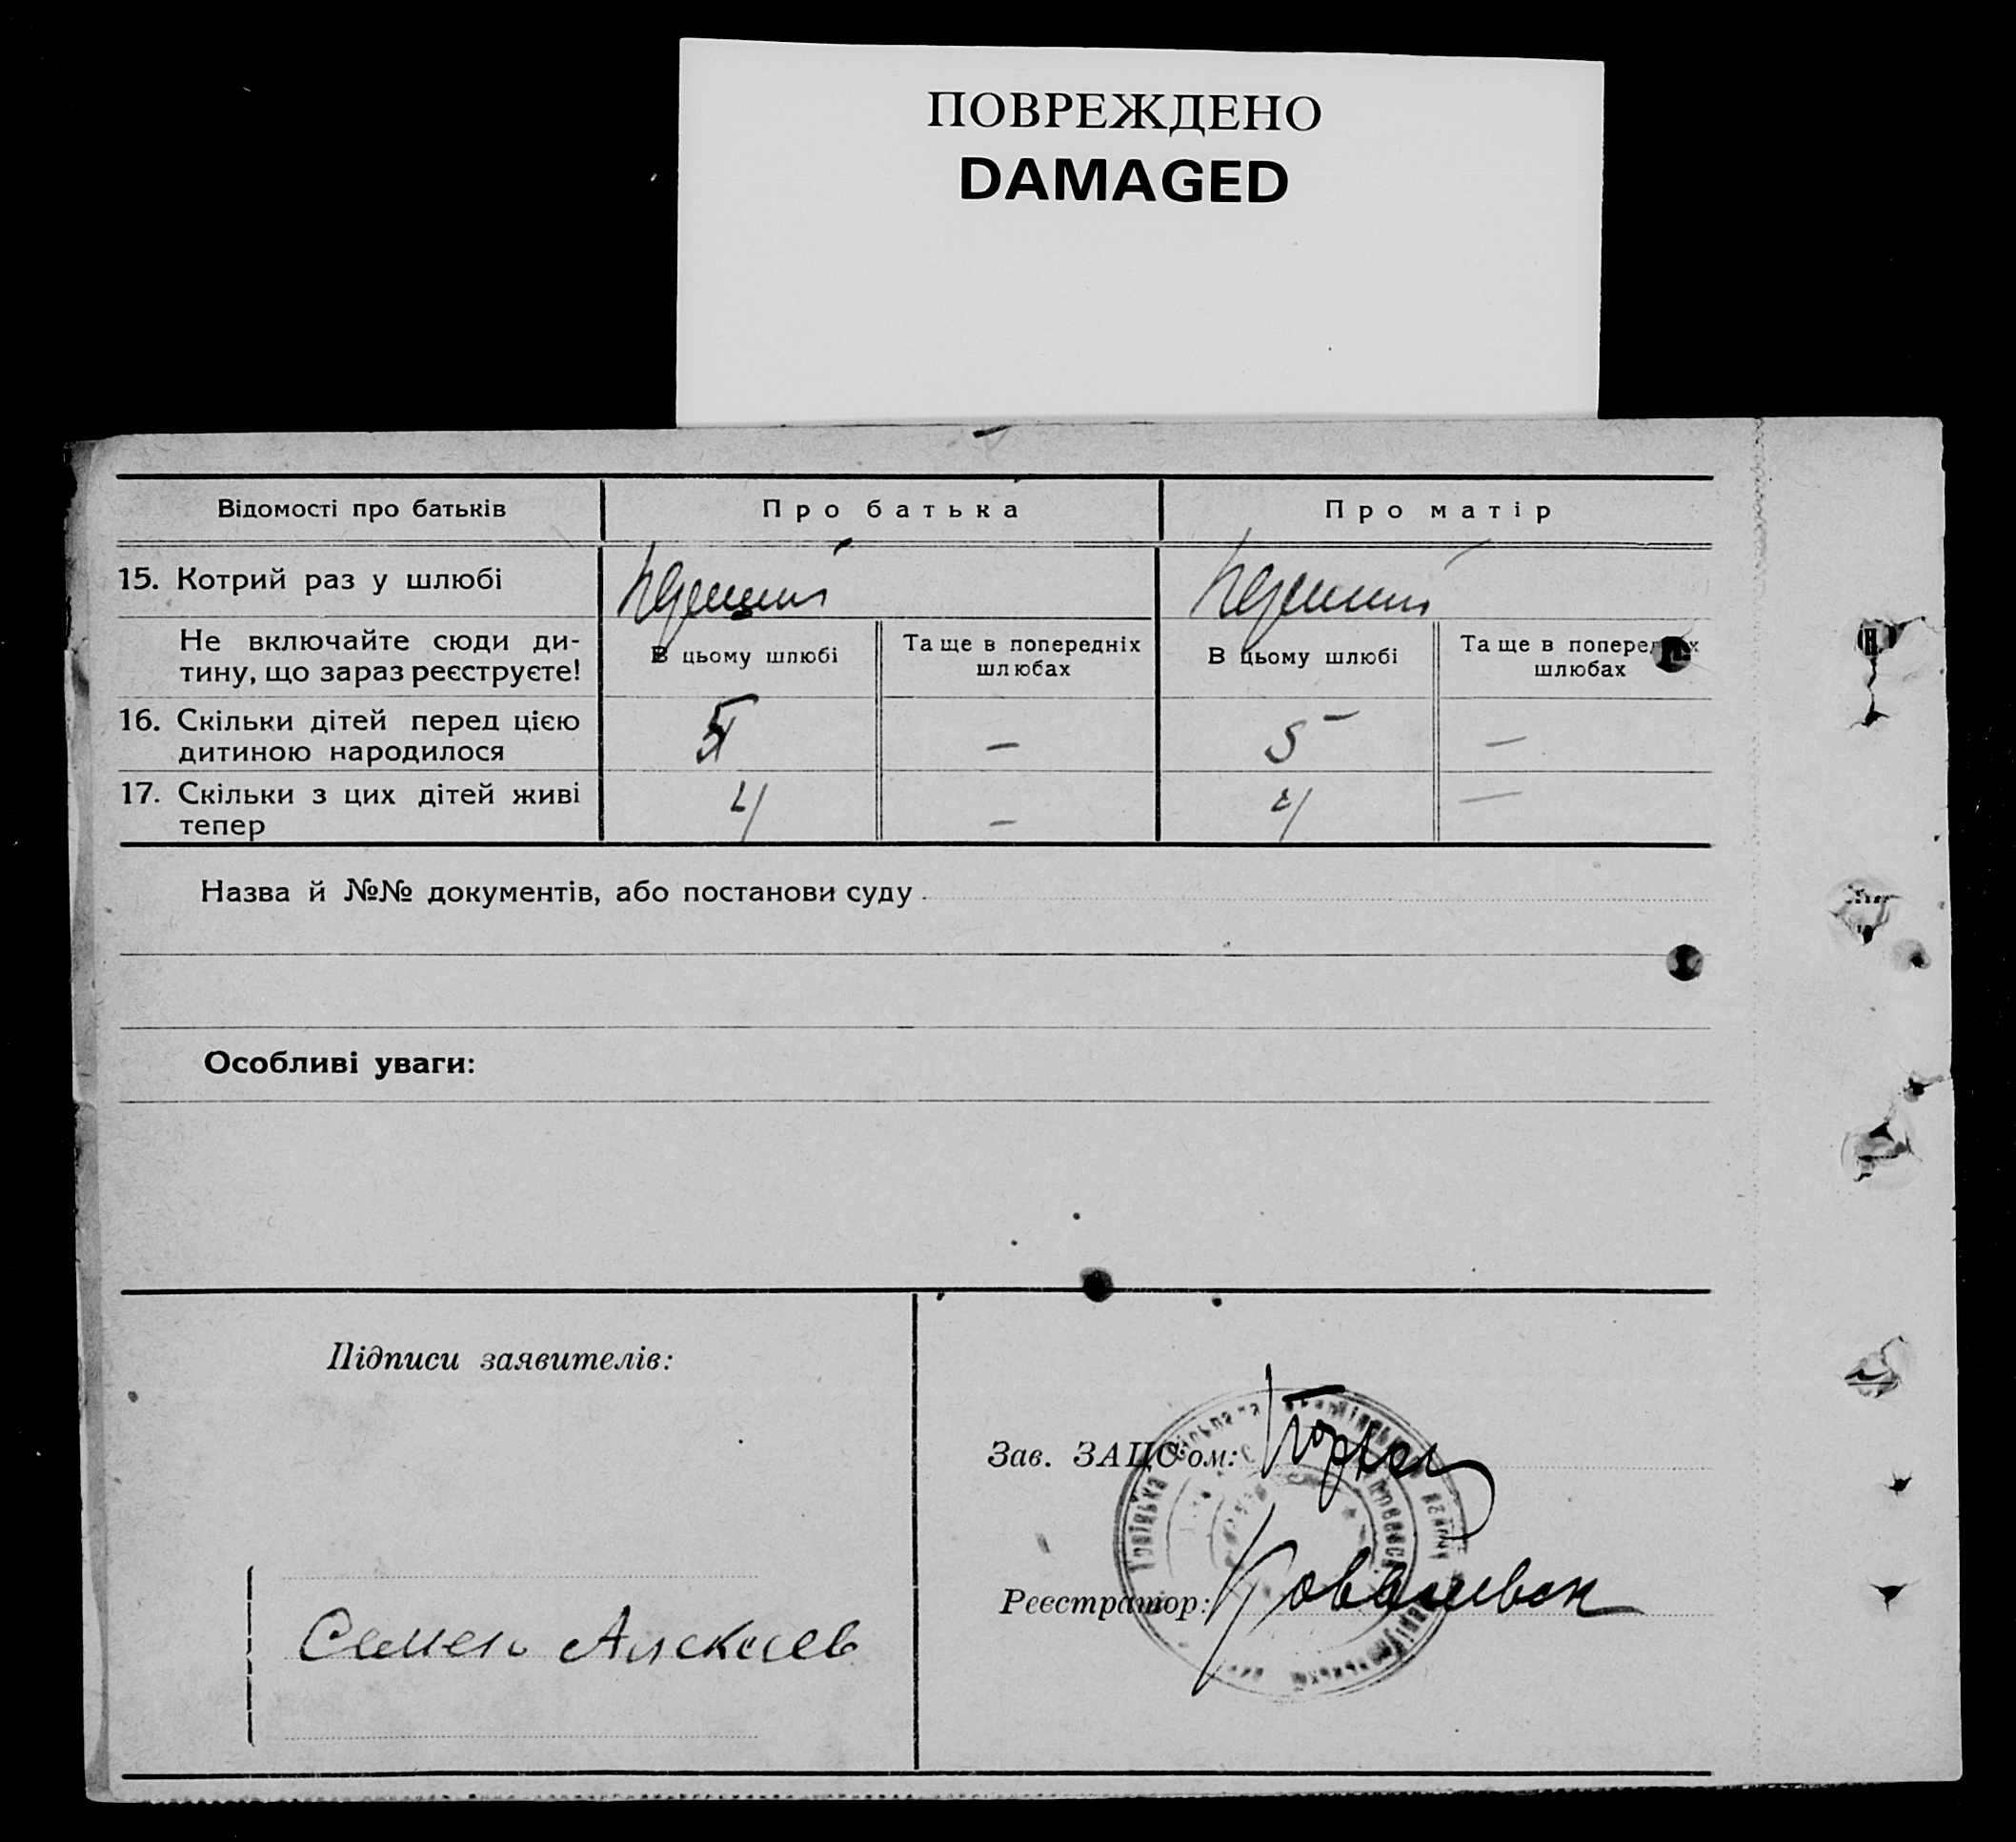 ПОВРЕЖДЕНО
DAMAGED
Відомості про батьків
Про батька
Про матір
15. Котрий раз у шлюбі
Перший
Перший
Не включайте сюди ди-
тину, що зараз реєструєте!
В цьому шлюбі
Та ще в попередніх
шлюбах
В цьому шлюбі
Та ще в попередніх
шлюбах
16. Скільки дітей перед цією
дитиною народилося
5
—
5
—
17. Скільки з цих дітей живі
тепер
4
—
4
—
Назва й №№ документів, або постанови суду
Особливі уваги:
Підписи заявителів:
Семен Алексеев
Зав. ЗАЦС'ом:
Реєстратор: